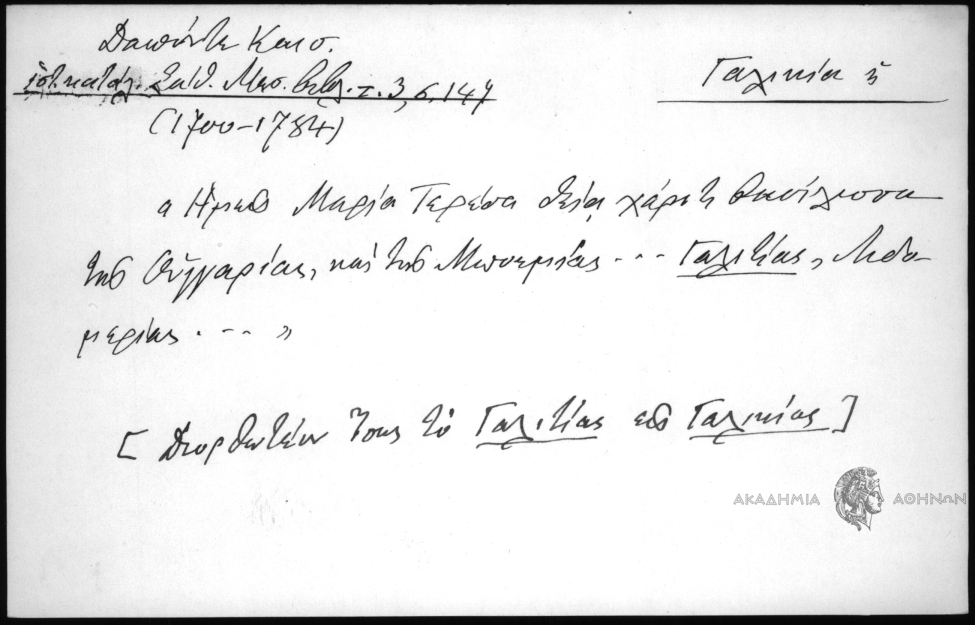 Δαπόντε Καισ.
ἱστ. κατάλ. Σάθ. Μεσ. βιβλ. τ. 3, σ. 147
Γαλικία ἡ
(1700-1784)
« Ἡμεῖς Μαρία Τερέσα θείᾳ χάριτι βασίλισσα
τῆς Οὐγγαρίας, καὶ τῆς Μποεμίας ... Γαλιτίας, Λοδο-
μερίας ... »
[Διορθωτέον ἴσως τὸ Γαλιτίας εἰς Γαλικίας]
ΑΚΑΔΗΜΙΑ ΑΘΗΝΩΝ